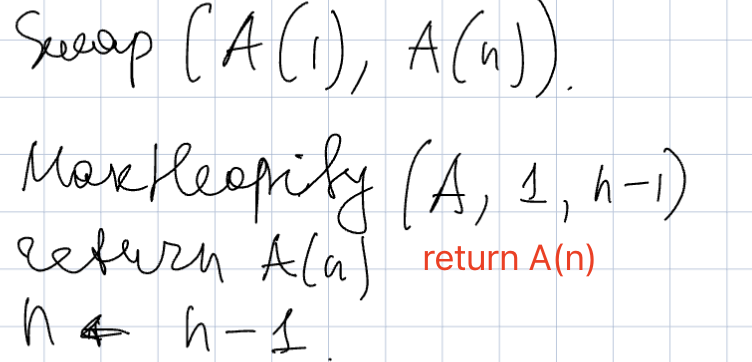 Swap (A(1), A(n)).
MaxHeapify (A, 1, n-1)
return A(n) return A(n)
n ← n-1.